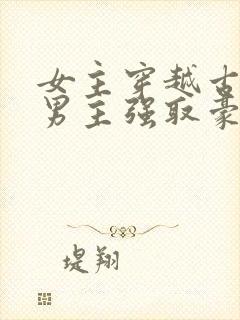 女主穿越古
男主强取豪
堤翔